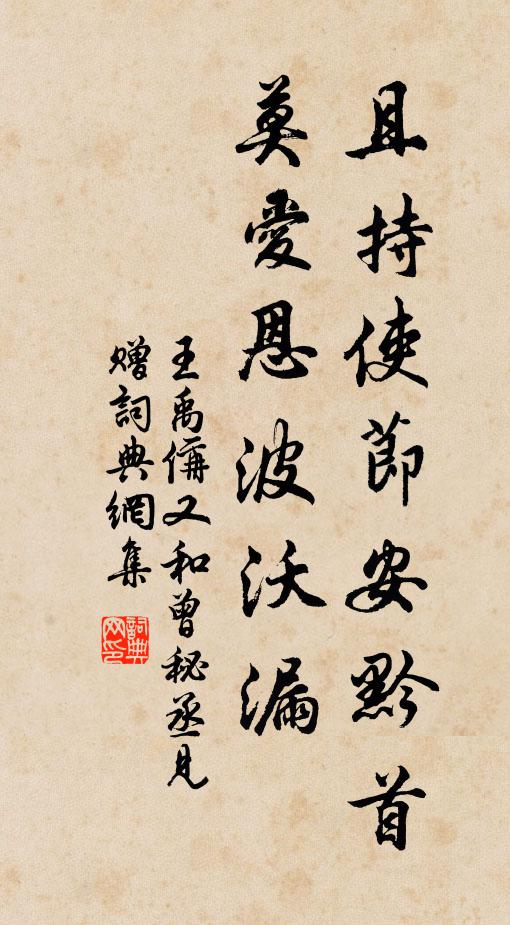 且持使節安黔首
莫愛恩波沃漏
王禹偁又和曾秘丞見
贈詞典網集
詞典網印